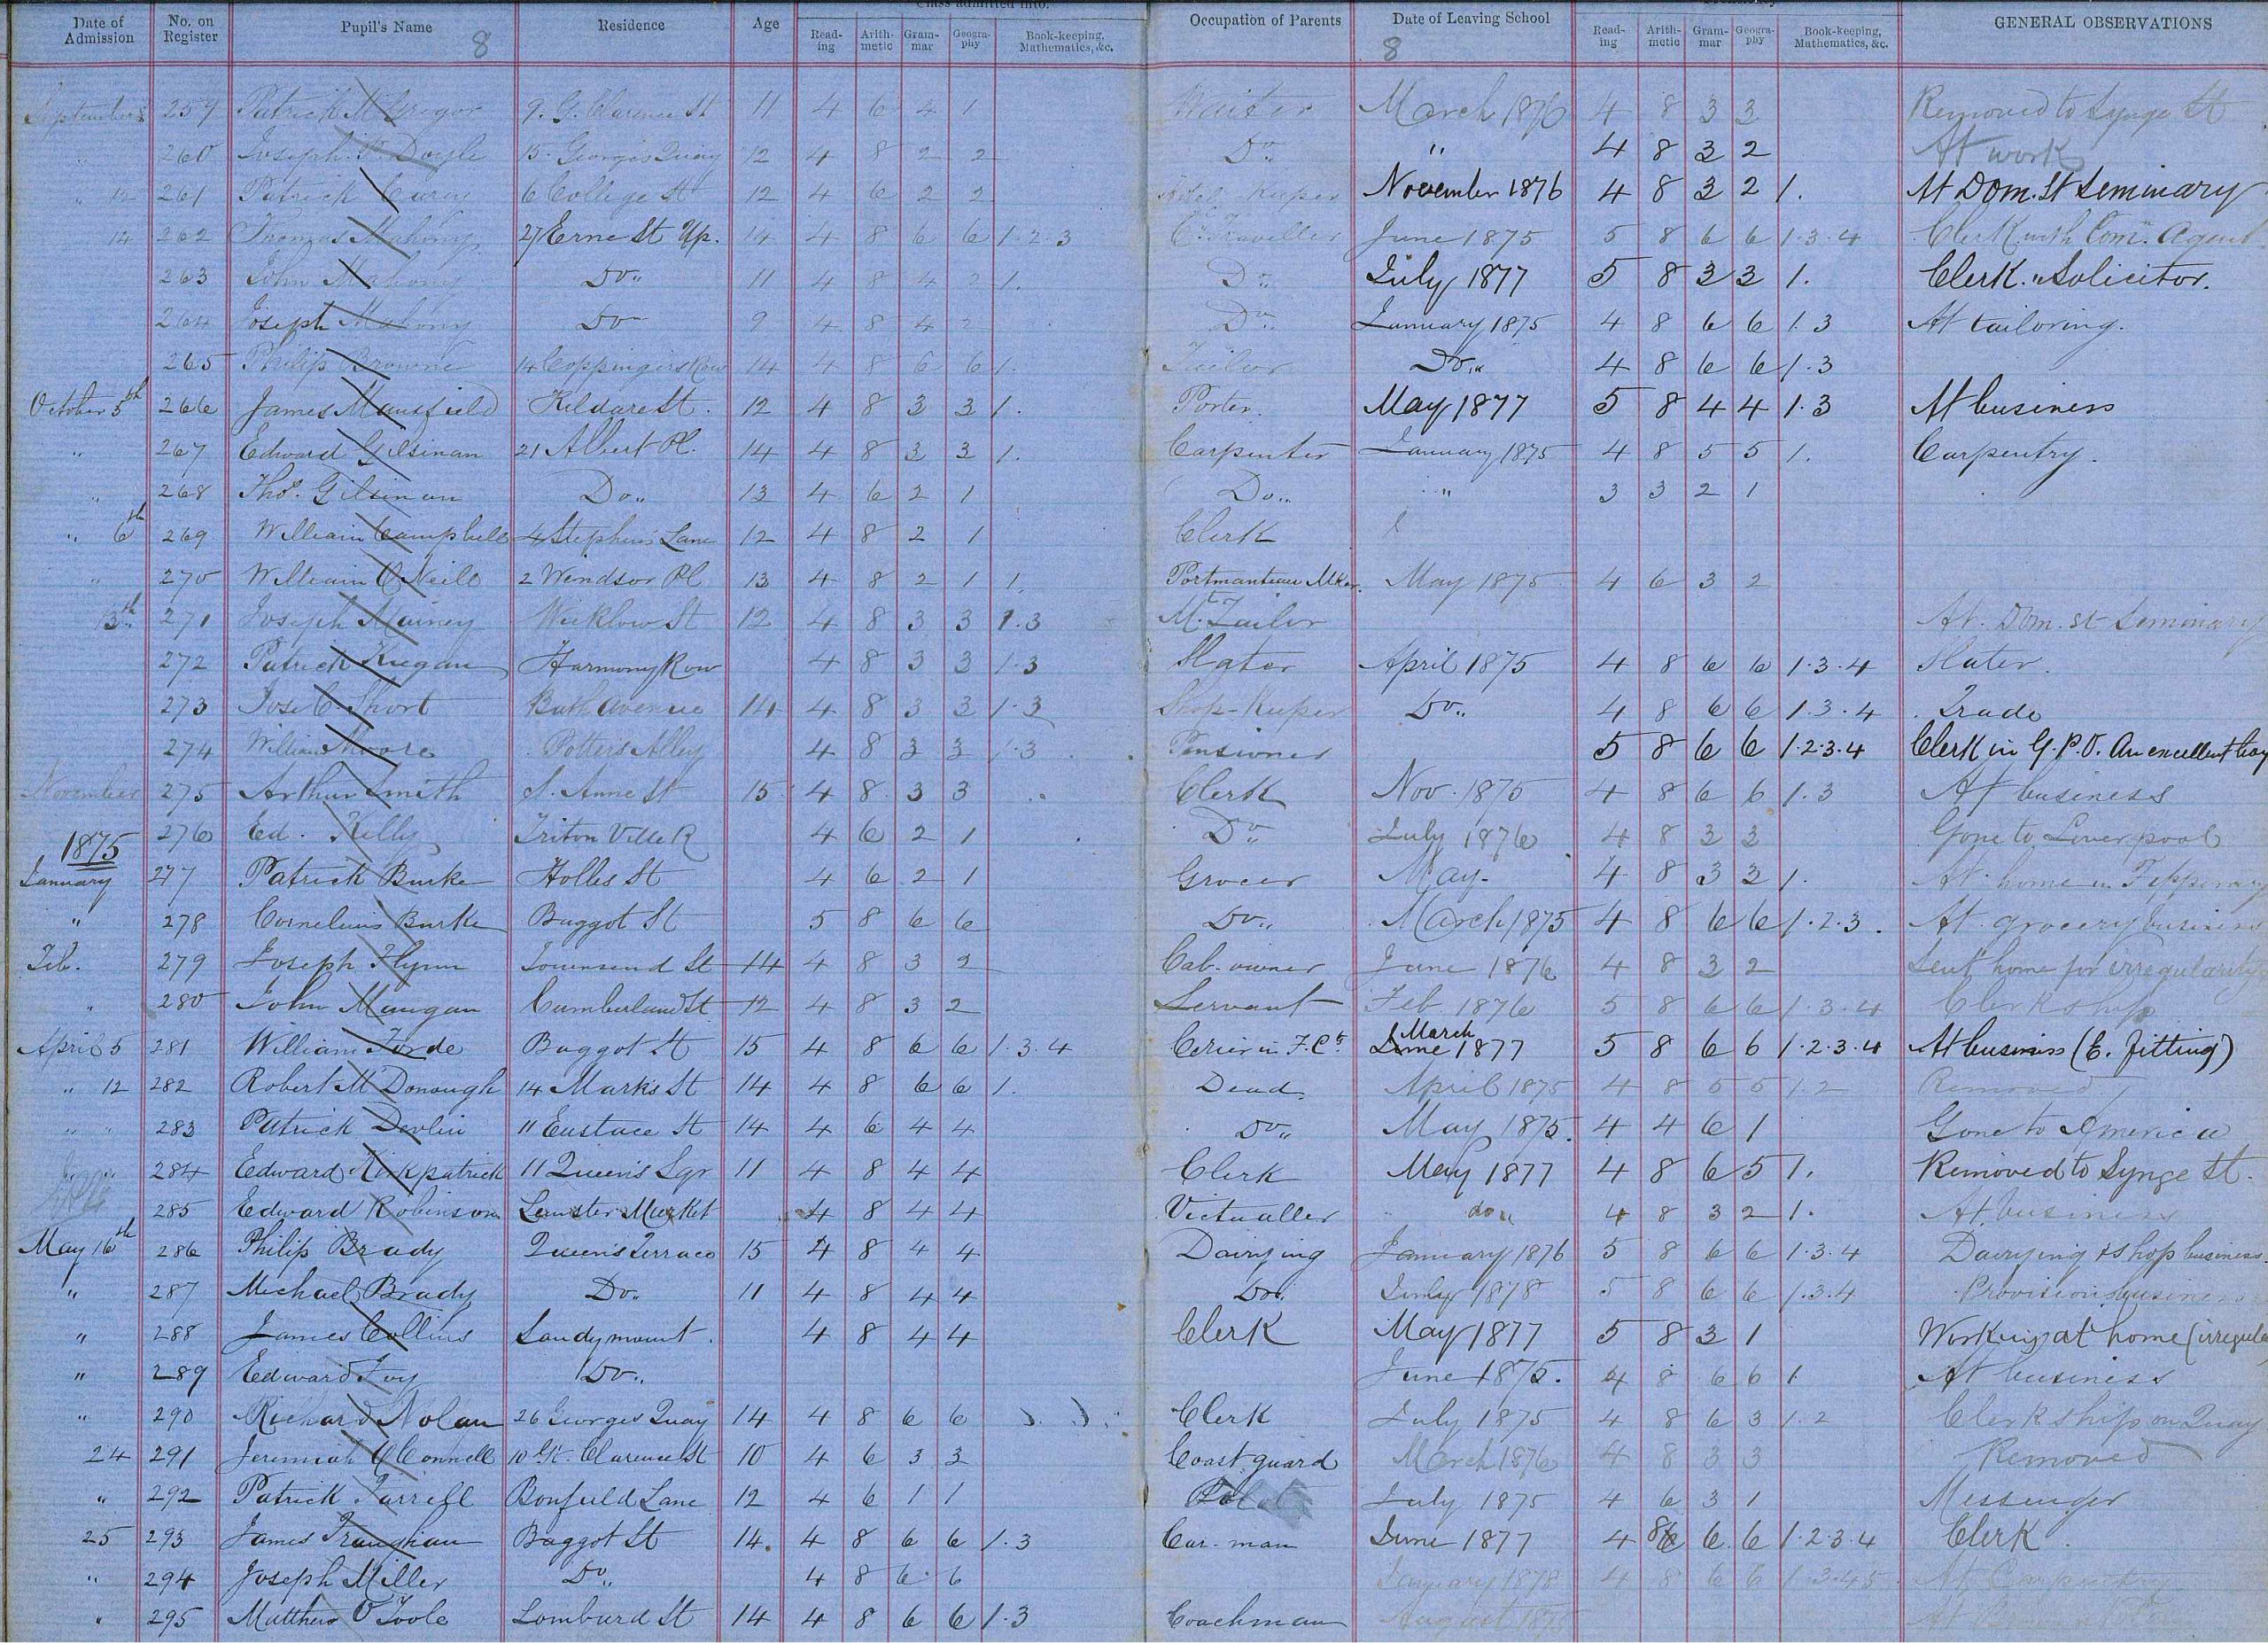 Class admitted into.
Date of Admission No. on Register Pupil's Name Residence Age Read-ing Arith-metic Gram-mar Geogra-phy Book-keeping, Mathematics, &c. Occupation of Parents Date of Leaving School Read-ing Arith-metic Gram-mar Geogra-phy Book-keeping, Mathematics, &c. GENERAL OBSERVATIONS
8 8
September 259 Patrick McGregor 9. G. Clarence St 11 4 6 4 1 Waiter March 1876 4 8 3 3 Removed to Synge St
" 260 Joseph P. Doyle 15. George's Quay 12 4 8 2 2 Do. " 4 8 3 2 At work
" 12 261 Patrick 6 College St 12 4 6 2 2 Hotel Keeper November 1876 4 8 3 2 1. At Dom. St Seminary
" 14 262 Thomas Mahony 27 Erne St Up. 14 4 8 6 6 1.2.3 C. Traveller June 1875 5 8 6 6 1.3.4 Clerk with Com. Agent
263 John Mahony Do. 11 4 8 4 2 1. Do. July 1877 5 8 3 3 1. Clerk. Solicitor.
264 Joseph Mahony Do 9 4 8 4 2 Do. January 1875 4 8 6 6 1.3 At tailoring.
265 Philip Browne 14 Coppingers Row 14 4 8 6 6 1. Tailor Do. 4 8 6 6 1.3
October 5th 266 James Mansfield Kildare St. 12 4 8 3 3 1. Porter. May 1877 5 8 4 4 1.3 At business
" 267 Edward Gilsinan 21 Albert Pl. 14 4 8 3 3 1. Carpenter January 1875 4 8 5 5 1. Carpentry.
" 268 Thos. Gilsinan Do. 13 4 6 2 1 Do. " 3 3 2 1
" 6th 269 William Campbell 4 Stephens Lane 12 4 8 2 1 Clerk
" 270 William O'Neill 2 Windsor Pl 13 4 8 2 1 1. Portmanteau Mker. May 1875 4 6 3 2
13th 271 Joseph Mainey Wicklow St 12 4 8 3 3 1.3 Mr. Tailor At. Dom. St Seminary
272 Patrick Keegan Harmony Row 4 8 3 3 1.3 Slater April 1875 4 8 6 6 1.3.4 Slater.
273 Jose C. Short Bath Avenue 14 4 8 3 3 1.3 Shop-Keeper Do. 4 8 6 6 1.3.4 Trade
274 William Moore Potters Alley 4 8 3 3 1.3 Pensioner 5 8 6 6 1.2.3.4 Clerk in G.P.O. An excellent boy
November 275 Arthur Smith S. Anne St 15 4 8 3 3 Clerk Nov. 1875 4 8 6 6 1.3 At business
276 Ed. Kelly Triton Ville R 4 6 2 1 Do. July 1876 4 8 3 3 Gone to Liverpool
1875
January 277 Patrick Burke Holles St 4 6 2 1 Grocer May- 4 8 3 3 1. At home in Tipperary
" 278 Cornelius Burke Baggot St 5 8 6 6 Do. March 1875 4 8 6 6 1.2.3. At grocery business
Feb. 279 Joseph Flynn Townsend St 14 4 8 3 2 Cab-owner June 1876 4 8 3 2 Sent home for irregularity
" 280 John Mangan Cumberland St 12 4 8 3 2 Servant Feb 1876 5 8 6 6 1.3.4 Clerkship
April 5 281 William Forde Baggot St 15 4 8 6 6 1.3.4 Crier in F. Ct. March 1877 5 8 6 6 1.2.3.4 At business (E. fitting)
" 12 282 Robert McDonough 14 Mark's St 14 4 8 6 6 1. Dead. April 1875 4 8 5 5 1.2 Removed
" " 283 Patrick Devlin 11 Eustace St 14 4 6 4 4 Do. May 1875. 4 4 6 1 Gone to America
284 Edward Kirkpatrick 11 Queen's Sqr 11 4 8 4 4 Clerk May 1877 4 8 6 5 1. Removed to Synge St.
285 Edward Robinson Leinster Market 4 8 4 4 Victualler do. 4 8 3 2 1. At. business
May 16th 286 Philip Brady Queen's Terrace 15 4 8 4 4 Dairying January 1876 5 8 6 6 1.3.4 Dairying & shop business.
" 287 Michael Brady Do. 11 4 8 4 4 Do. July 1878 5 8 6 6 1.3.4 Provision business
" 288 James Collins Sandymount. 4 8 4 4 Clerk May 1877 5 8 3 1 Working at home (irregula
" 289 Edward Ivy Do. June 1875. 4 8 6 6 1 At business
" 290 Richard Nolan 26 Georges Quay 14 4 8 6 6 Clerk July 1875 4 8 6 3 1.2 Clerkship on Quay
24 291 Jeremiah O'Connell 10 Gt. Clarence St 10 4 6 3 3 Coast guard March 1876 4 8 3 3 Removed
" 292 Patrick Farrell Bonfield Lane 12 4 6 1 1 July 1875 4 6 3 1 Messenger
25 293 James Traughan Baggot St 14. 4 8 6 6 1.3 Car-man June 1877 4 8 6 6 1.2.3.4 Clerk.
" 294 Joseph Miller Do. 4 8 6 6 January 1878 4 8 6 6 1.3.4.5 At Carpentry
" 295 Matthew O'Toole Lombard St 14 4 8 6 6 1.3 Coachman August 1875